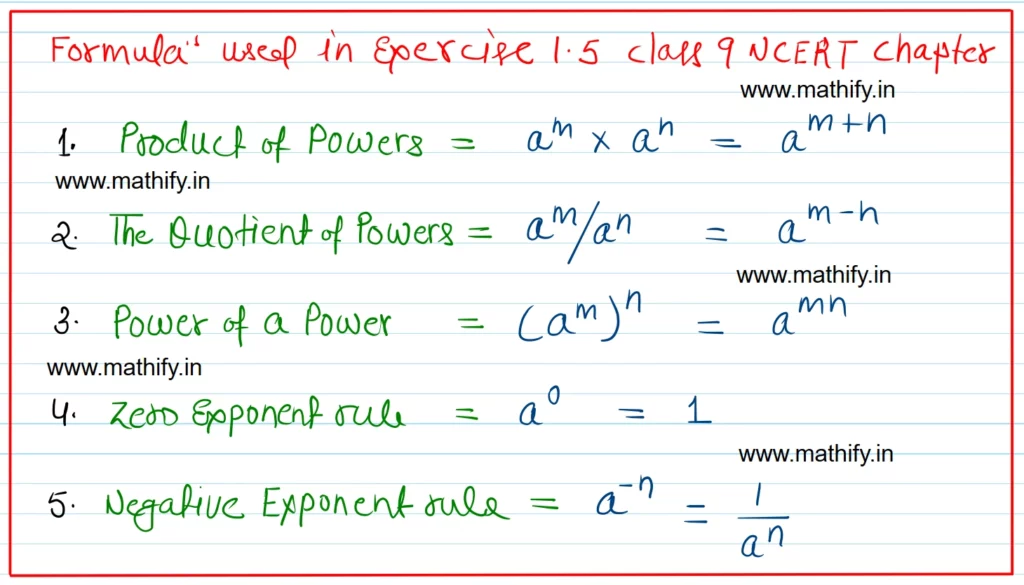 Formula's used in Exercise 1.5 class 9 NCERT Chapter
www.mathify.in
1. Product of Powers = a^m × a^n = a^{m+n}
www.mathify.in
2. The Quotient of Powers = a^m/a^n = a^{m-n}
www.mathify.in
3. Power of a Power = (a^m)^n = a^{mn}
www.mathify.in
4. Zero Exponent rule = a^0 = 1
www.mathify.in
5. Negative Exponent rule = a^{-n} = 1/a^n